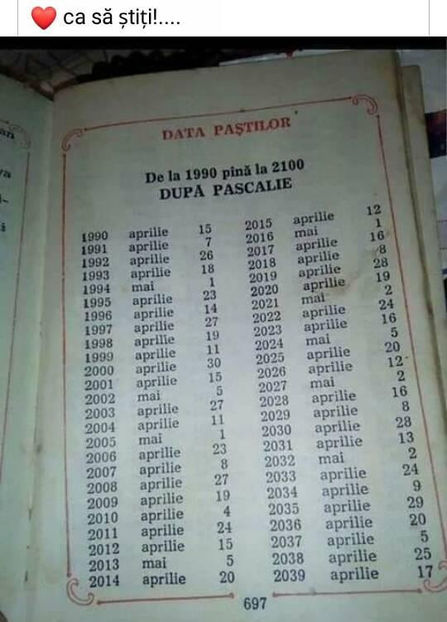 ca să știți!....
DATA PAȘTILOR
De la 1990 pînă la 2100
DUPĂ PASCALIE
1990 aprilie 15
1991 aprilie 7
1992 aprilie 26
1993 aprilie 18
1994 mai 1
1995 aprilie 23
1996 aprilie 14
1997 aprilie 27
1998 aprilie 19
1999 aprilie 11
2000 aprilie 30
2001 aprilie 15
2002 mai 5
2003 aprilie 27
2004 aprilie 11
2005 mai 1
2006 aprilie 23
2007 aprilie 8
2008 aprilie 27
2009 aprilie 19
2010 aprilie 4
2011 aprilie 24
2012 aprilie 15
2013 mai 5
2014 aprilie 20
2015 aprilie 12
2016 mai 1
2017 aprilie 16
2018 aprilie 8
2019 aprilie 28
2020 aprilie 19
2021 mai 2
2022 aprilie 24
2023 aprilie 16
2024 mai 5
2025 aprilie 20
2026 aprilie 12
2027 mai 2
2028 aprilie 16
2029 aprilie 8
2030 aprilie 28
2031 aprilie 13
2032 mai 2
2033 aprilie 24
2034 aprilie 9
2035 aprilie 29
2036 aprilie 20
2037 aprilie 5
2038 aprilie 25
2039 aprilie 17
697